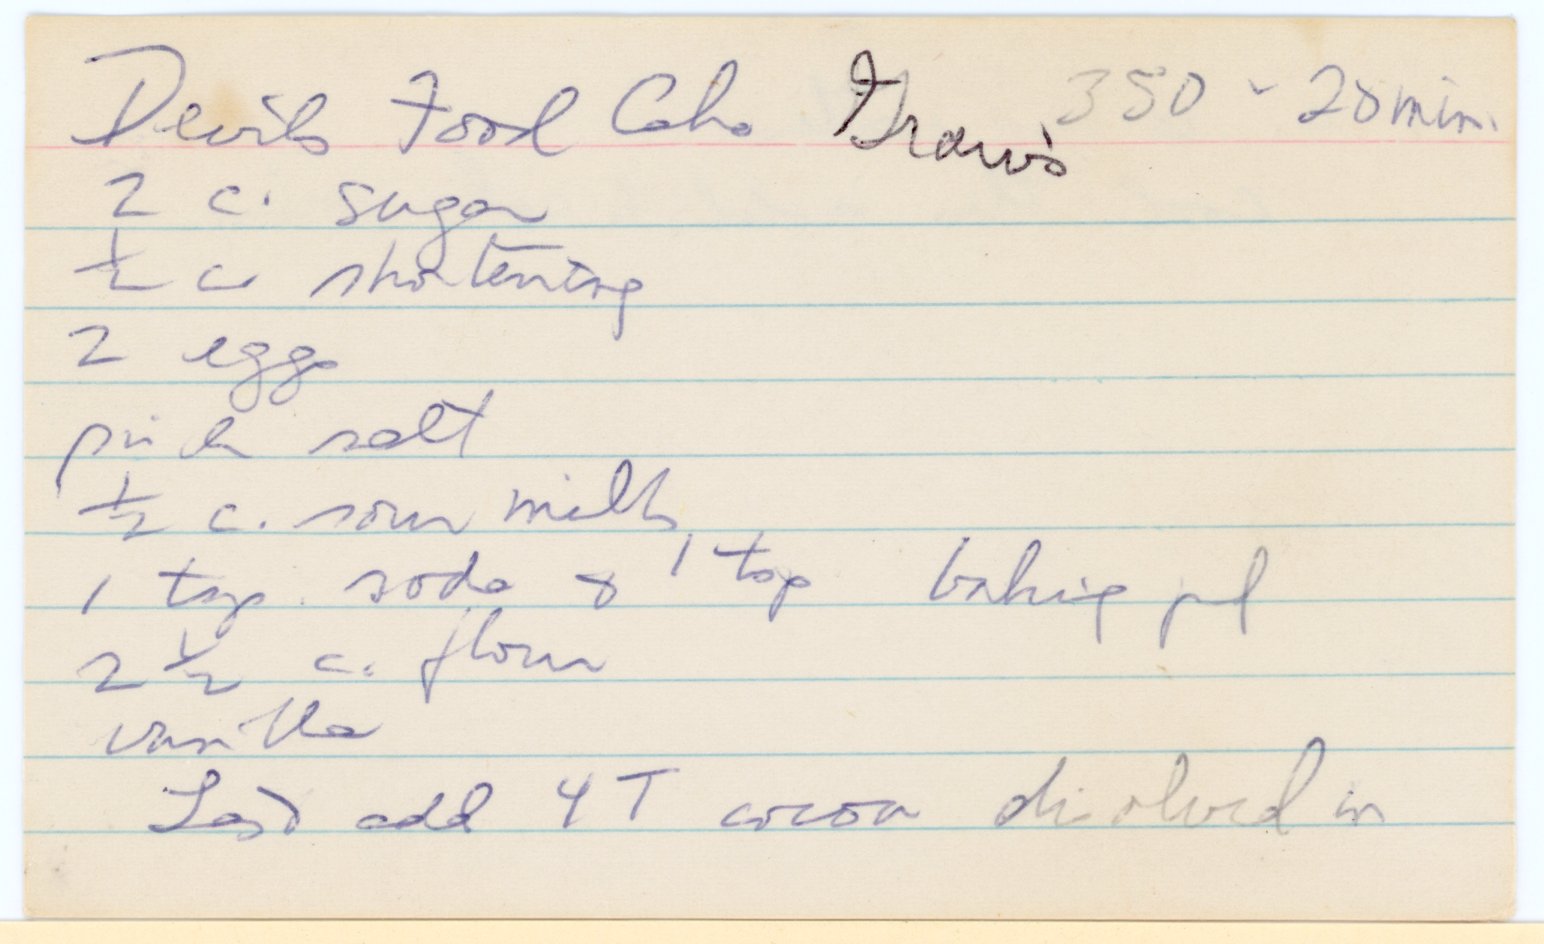 Devils Food Cake Graw's 350 - 20 min.
2 c. sugar
1/2 c shortening
2 eggs
pinch salt
1/2 c. sour milk
1 tsp. soda & 1 tsp baking pd
2 1/2 c. flour
vanilla
Last add 4 T cocoa disolved in